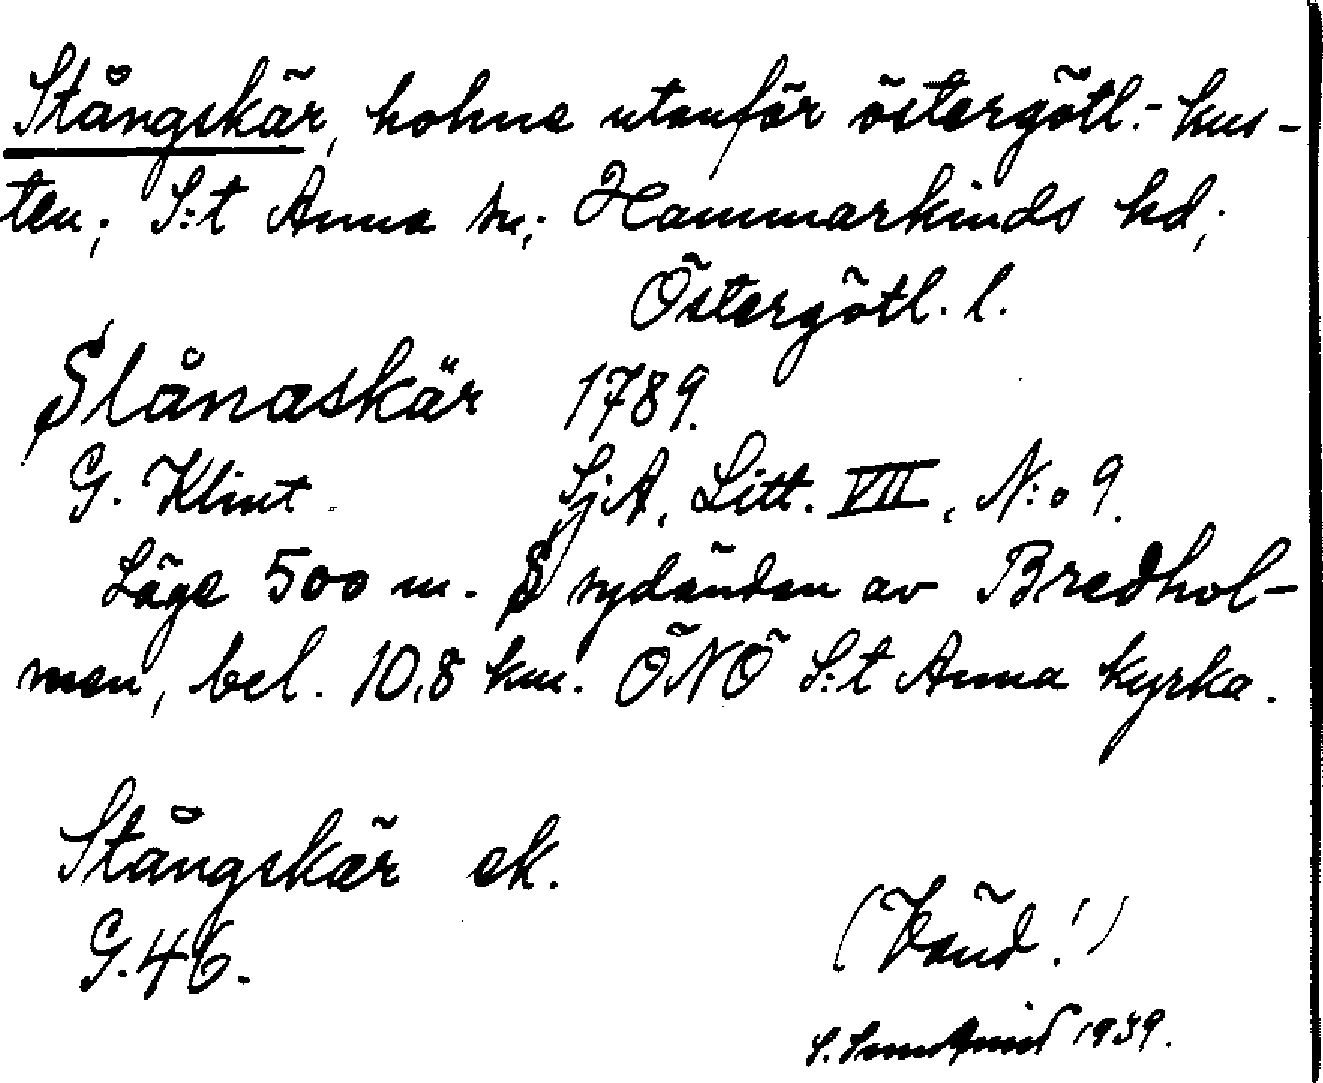 Stångskär, holme utanför östergötl.-kus-
ten; S:t Anna sn; Hammarkinds hd;
Östergötl. l.
Slånaskär 1789.
G. Klint. SjA, Litt. VII, N:o 9.
Läge 500 m. S sydänden av Bredhol-
men, bel. 10,8 km. ÖNÖ S:t Anna kyrka.
Stångskär ek.
G.46.
(Vänd!)
S. 1939.